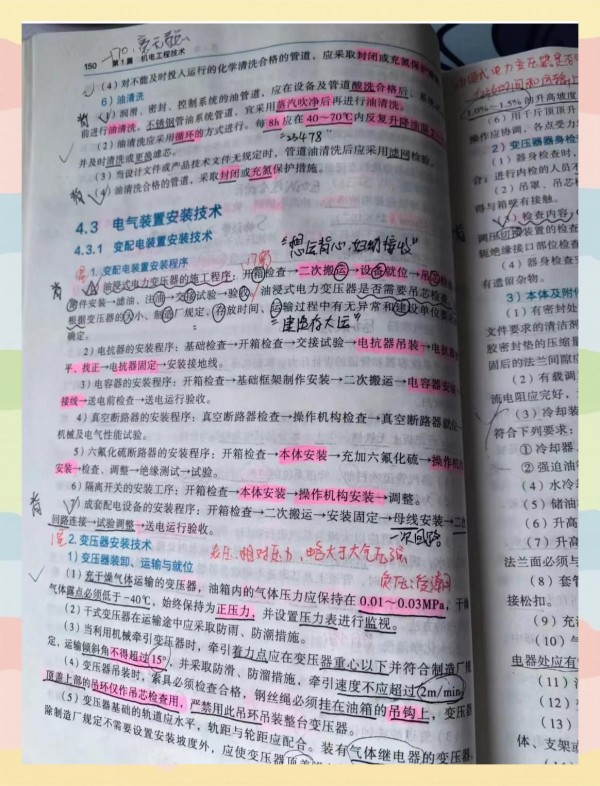 150 第1篇 机电工程技术
（4）对不能及时投入运行的化学清洗合格的管道，应采取封闭或充氮保护
6）油清洗
（1）润滑、密封、控制系统的油管道，应在设备及管道酸洗合格后、
前进行油清洗，不锈钢管油系统管道，宜采用蒸汽吹净后再进行油清洗。
（2）油清洗应采用循环的方式进行。每8h应在40～70℃内反复升降油温
并及时清洗或更换滤芯。
"23478"
（3）当设计文件或产品技术文件无规定时，管道油清洗后应采用滤网检验。
背
（4）油清洗合格的管道，采取封闭或充氮保护措施。
4.3 电气装置安装技术
4.3.1 变配电装置安装技术
1. 变配电装置安装程序
背
1）油浸式电力变压器的施工程序：开箱检查→二次搬运→设备就位→吊芯检查→
附件安装→滤油、注油→交接试验→验收。油浸式电力变压器是否需要吊芯检查，
根据变压器的大小、制造厂规定、存放时间、运输过程中有无异常和建设单位要求
确定。
"建造存大运"
2）电抗器的安装程序：基础检查→开箱检查→交接试验→电抗器吊装→电抗器
平、找正→电抗器固定→安装接地线。
3）电容器的安装程序：开箱检查→基础框架制作安装→二次搬运→电容器安装→
接线→送电前检查→送电运行验收。
4）真空断路器的安装程序：真空断路器检查→操作机构检查→真空断路器就位→
机械及电气性能试验。
5）六氟化硫断路器的安装程序：开箱检查→本体安装→充加六氟化硫→操作机构
安装→检查、调整→绝缘测试→试验。
6）隔离开关的安装工序：开箱检查→本体安装→操作机构安装→调整。
背
7）成套配电设备的安装程序：开箱检查→二次搬运→安装固定→母线安装→二次
回路连接→试验调整→送电运行验收。
一次回路
2. 变压器安装技术
1）变压器装卸、运输与就位
（1）充干燥气体运输的变压器，油箱内的气体压力应保持在0.01～0.03MPa，干燥
气体露点必须低于－40℃，始终保持为正压力，并设置压力表进行监视。
（2）干式变压器在运输途中应采取防雨、防潮措施。
（3）当利用机械牵引变压器时，牵引着力点应在变压器重心以下并符合制造厂规
定，运输倾斜角不得超过15°，并采取防滑、防溜措施，牵引速度不应超过2m/min
（4）变压器吊装时，索具必须检查合格，钢丝绳必须挂在油箱的吊钩上，变压器
顶盖上部的吊环仅作吊芯检查用，严禁用此吊环吊装整台变压器。
（5）变压器基础的轨道应水平，轨距与轮距应配合。装有气体继电器的变压器，
除制造厂规定不需要设置安装坡度外，应使变压器顶盖
1.0%～1.5%的升高坡度
（6）用千斤顶顶升
操作应协调，各点受力
2）变压器器身检查
（1）器身检查时，
合；进行内检的人员不
（2）吊罩、吊芯
得与箱壁有接触。
（3）检查内容
调压切换装置的检查
轭绝缘接口部位检查
（4）器身检查完
有遗留杂物。
3）本体及附件
（1）有密封处
文件要求的清洁剂
胶密封垫的压缩量
固后的法兰间隙应
（2）有载调
流电阻应完好，
（3）冷却装
符合下列要求：
① 冷却器
② 强迫油
（4）水冷
（5）储油
（6）升高
（7）升高
法兰面必须与
（8）套管
接松扣。
（9）充
（10）气
电器处应有
（11）
（12）
（13）
体、支架或